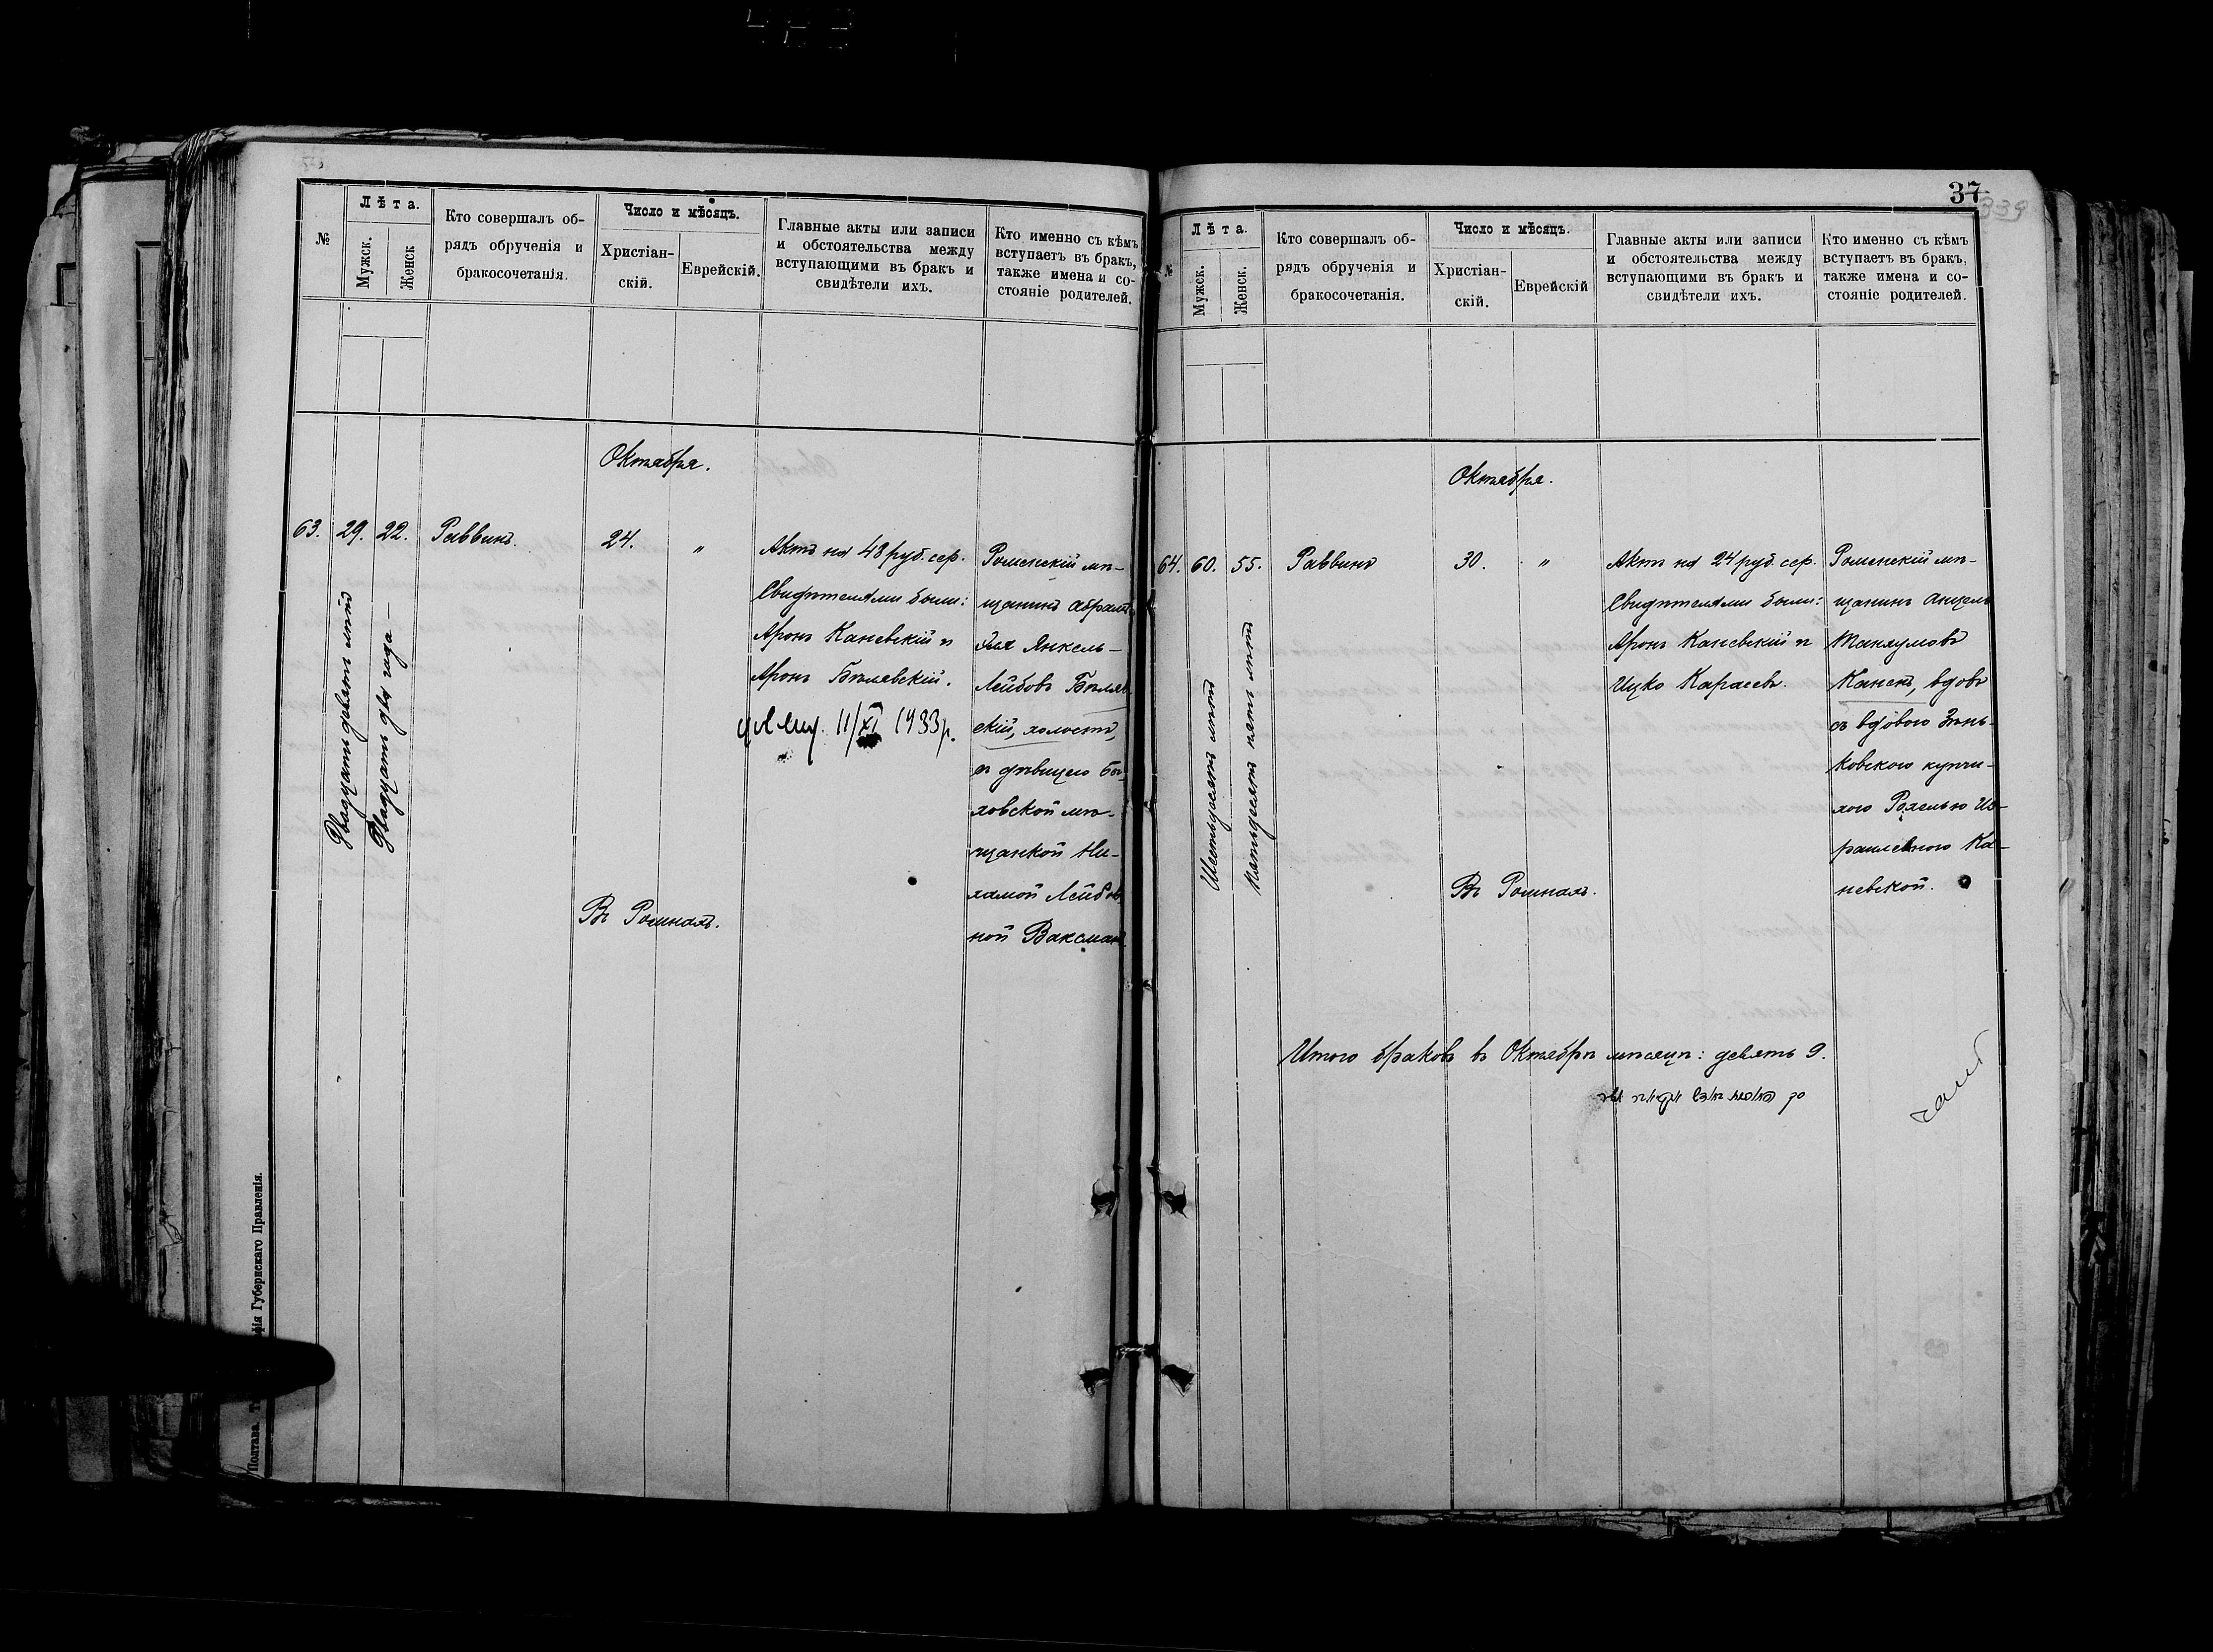 №
Лѣта.
Мужск.
Женск
Кто совершалъ об-
рядъ обрученія и
бракосочетанія.
Число и мѣсяцъ.
Христіан-
скій.
Еврейскій.
Главные акты или записи
и обстоятельства между
вступающими въ бракъ и
свидѣтели ихъ.
Кто именно съ кѣмъ
вступаетъ въ бракъ,
также имена и со-
стояніе родителей.
Октября.
63. 29. 22. Раввинъ. 24. "
Двадцать девять лѣтъ
Двадцать два года
Въ Ромнахъ.
Актъ на 48 руб. сер.
Свидѣтелями были:
Аронъ Каневскій и
Аронъ Бѣлевскій.
11/XI 1933 р.
Роменскій мѣ-
щанинъ Абрамъ
Эля Янкель-
Лейбовъ Бѣляв-
скій, холостъ,
съ дѣвицею
ховской мѣ-
щанкой Не-
хамой Лейбов-
ной Ваксманъ
Полтава. Губернскаго Правленія.
37
339
№
Лѣта.
Мужск.
Женск.
Кто совершалъ об-
рядъ обрученія и
бракосочетанія.
Число и мѣсяцъ.
Христіан-
скій.
Еврейскій
Главные акты или записи
и обстоятельства между
вступающими въ бракъ и
свидѣтели ихъ.
Кто именно съ кѣмъ
вступаетъ въ бракъ,
также имена и со-
стояніе родителей.
Октября.
64. 60. 55. Раввинъ 30. "
Шестьдесятъ лѣтъ
Пятьдесятъ пять лѣтъ
Въ Ромнахъ.
Актъ на 24 руб. сер.
Свидѣтелями были:
Аронъ Каневскій и
Ицко Карасевъ.
Роменскій мѣ-
щанинъ Анцель
Танхумовъ
вдовъ
съ вдовою Зѣнь-
ковскою купчи-
хою Рохелью Из-
раилевною Ка-
невской.
Итого браковъ въ Октябрѣ мѣсяцѣ: девять 9.